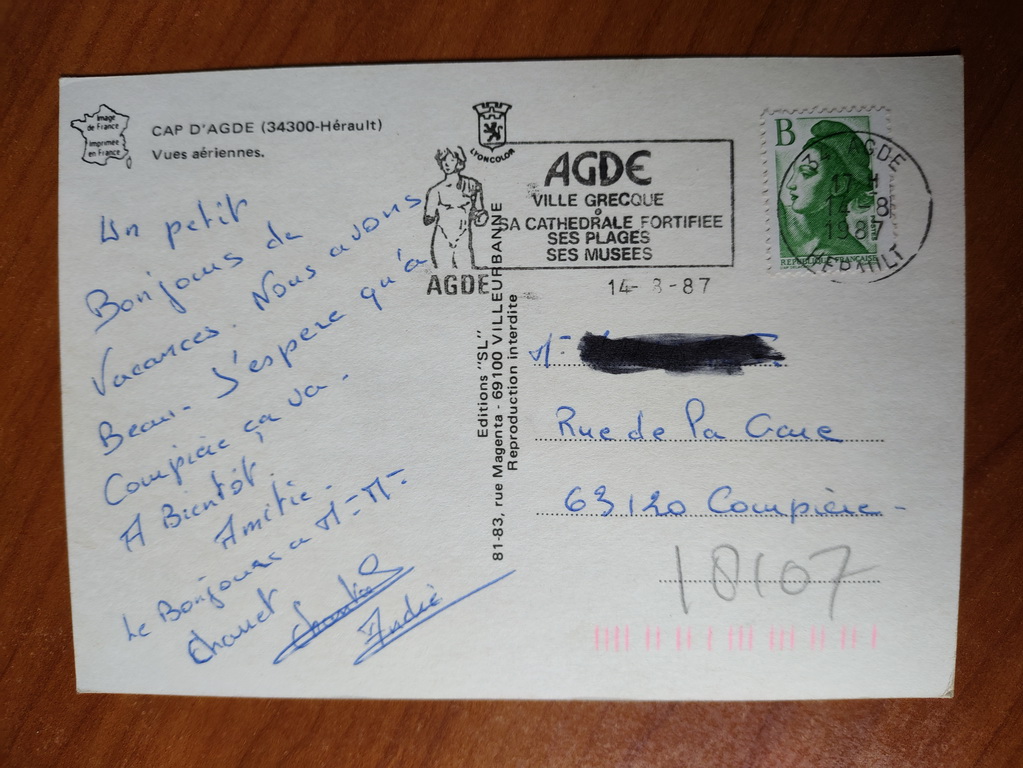 Image
de France
Imprimée
en France
CAP D'AGDE (34300-Hérault)
Vues aériennes.
LYONCOLOR
AGDE
VILLE GRECQUE
SA CATHEDRALE FORTIFIEE
SES PLAGES
SES MUSEES
AGDE
14-8-87
B
REPUBLIQUE FRANCAISE
34 AGDE
17 H
14-8
1987
HERAULT
Un petit
Bonjours de
Vacances. Nous avons
Beau. J'espere qu'à
Compière ça va.
A Bientôt.
Amitié.
Le Bonjours a M-M-
Chauet
André
Editions "SL"
81-83, rue Magenta - 69100 VILLEURBANNE
Reproduction interdite
M-
Rue de la Gare
63120 Compière-
18107